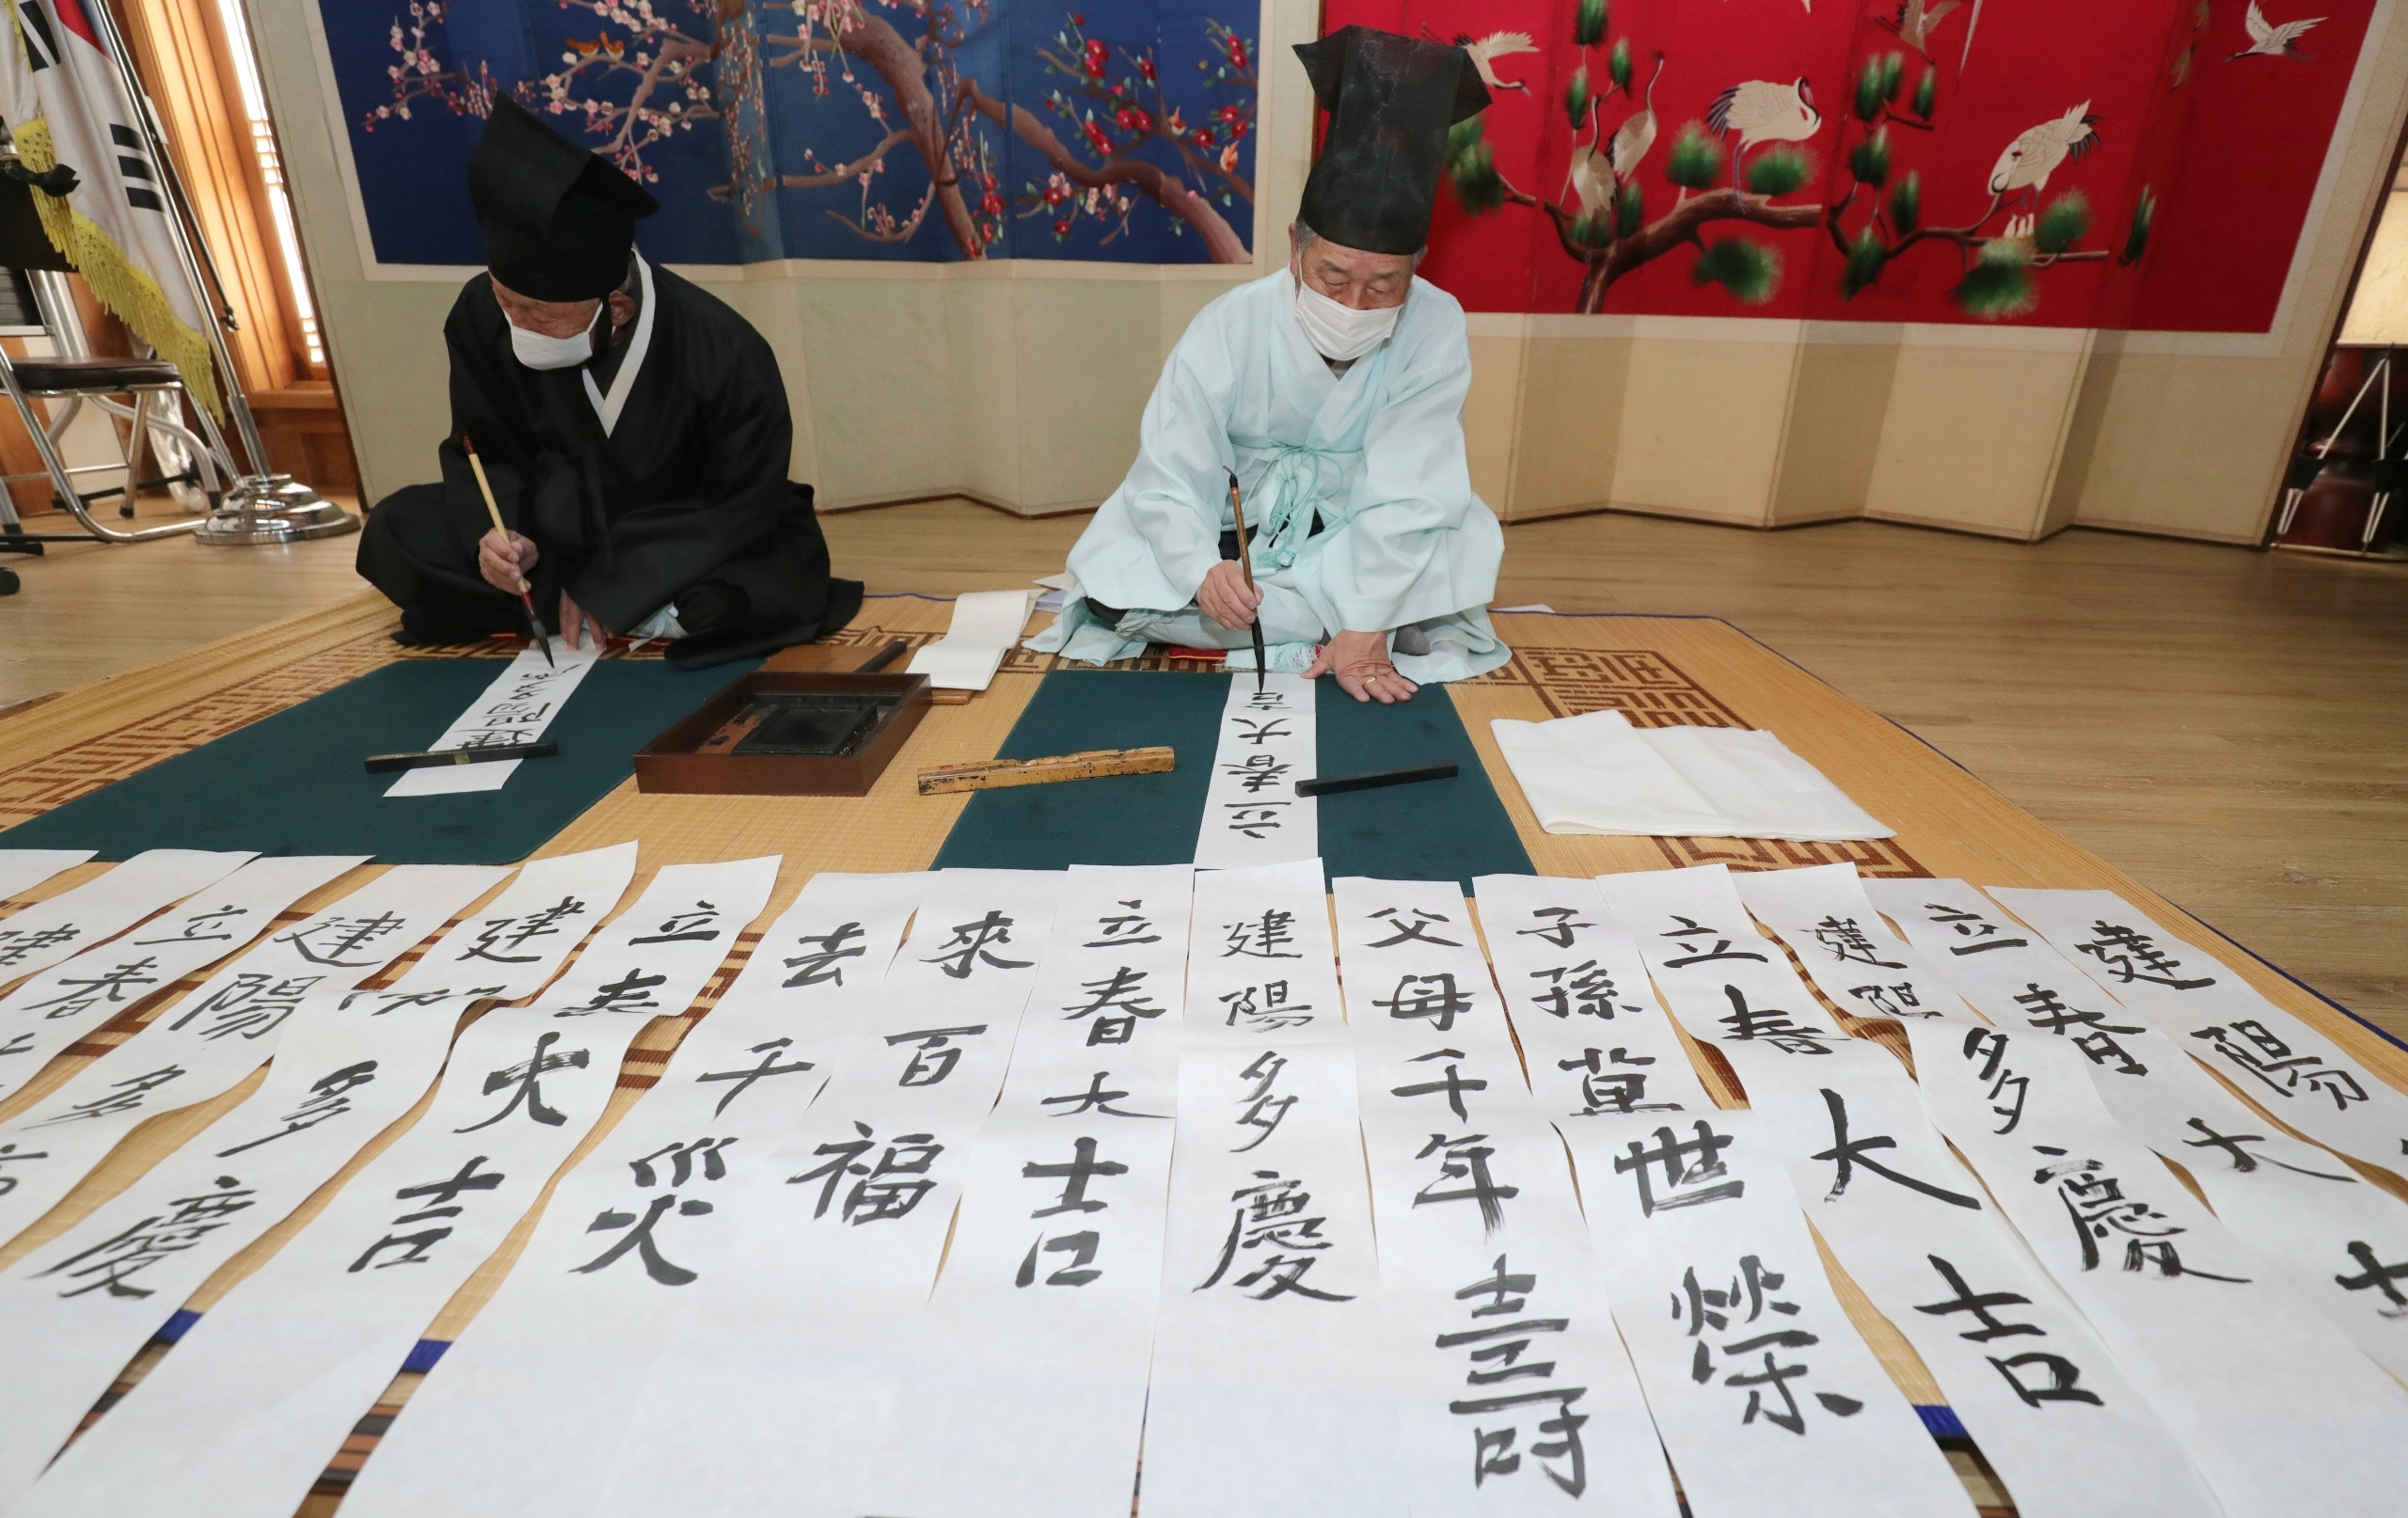 建陽多
立春大吉
建
立春大
建陽多
建陽多慶
立春大吉
去千災
來百福
立春大吉
建陽多慶
父母千年壽
子孫萬世榮
立春大吉
建陽多慶
立春大吉
建陽